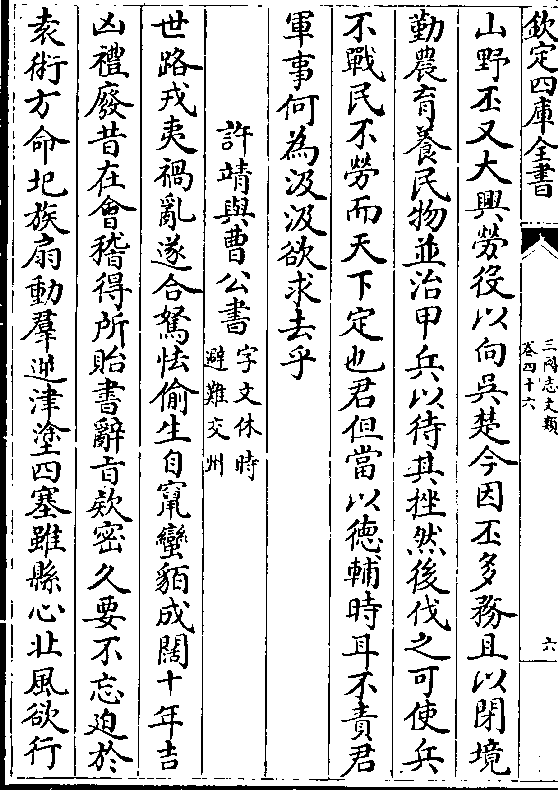 欽定四庫全書
三國志文類
卷四十六
六
山野丕又大興勞役以向吳楚今因丕多務且以閉境
勤農育養民物並治甲兵以待其挫然後伐之可使兵
不戰民不勞而天下定也君但當以德輔時耳不責君
軍事何為汲汲欲求去乎
許靖與曹公書字文休時避難交州
世路戎夷禍亂遂合駑怯偷生自竄蠻貊成闊十年吉
凶禮廢昔在會稽得所貽書辭旨款密久要不忘迫於
袁術方命圮族扇動羣逆津塗四塞雖縣心北風欲行